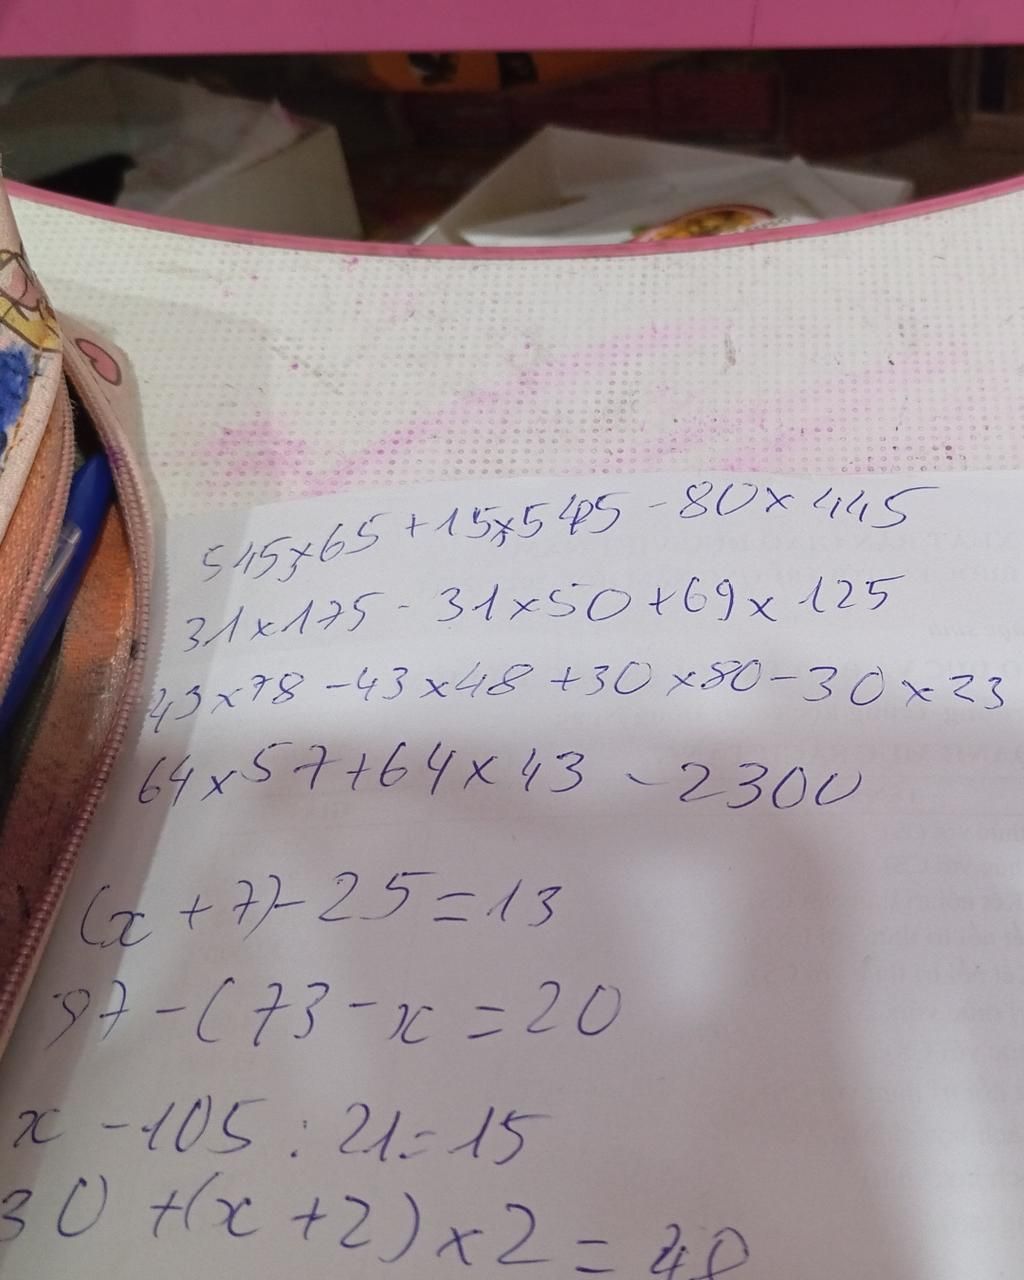 545x65 + 15x545 - 80 x 445
31 x 175 - 31 x 50 + 69 x 125
43 x 78 - 43 x 48 + 30 x 80 - 30 x 23
64 x 57 + 64 x 43 - 2300
(x + 7) - 25 = 13
97 - (73 - x = 20
x - 105 : 21 = 15
30 + (x + 2) x 2 = 48